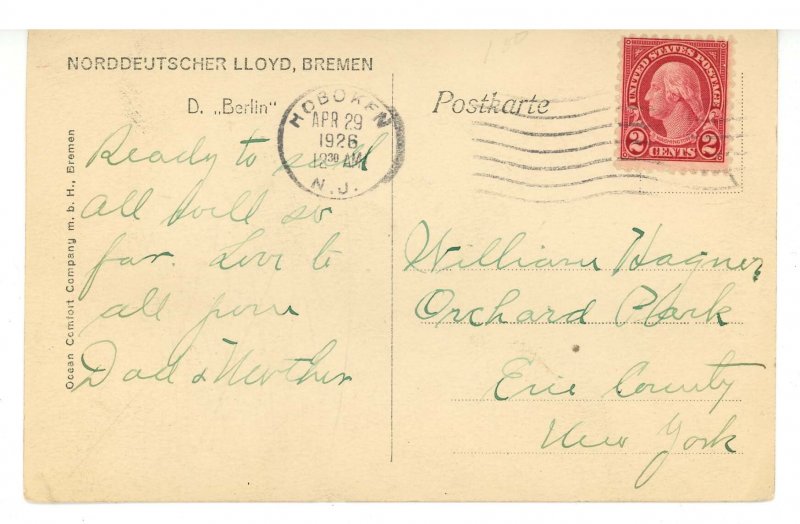 NORDDEUTSCHER LLOYD, BREMEN
D. „Berlin"
Postkarte
HOBOKEN
APR 29
1926
12 30 AM
N.J.
UNITED STATES POSTAGE
WASHINGTON
2 CENTS 2
Ready to sail
all well so
far. Love to
all from
Dad & Mother
William Hagner
Orchard Park
Erie County
New York
Ocean Comfort Company m. b. H., Bremen